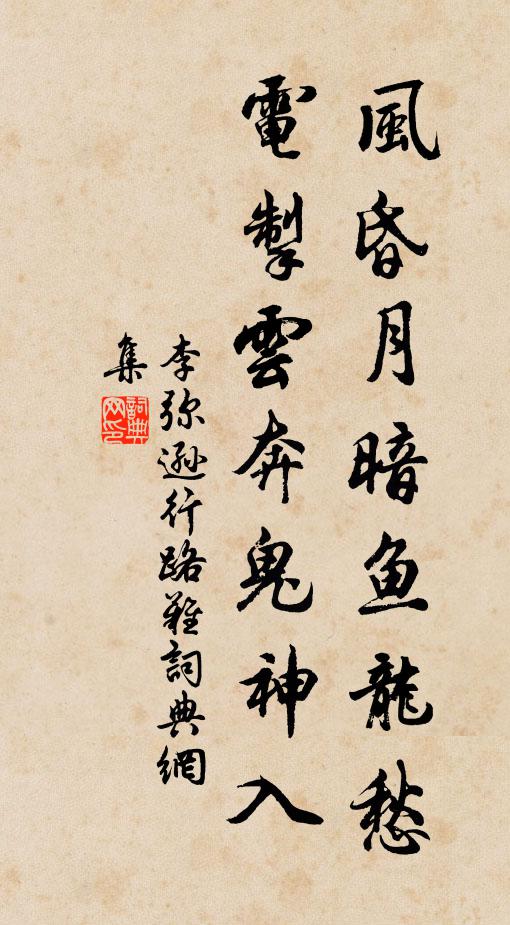 風昏月暗魚龍愁
電掣雲奔鬼神入
李弥遜行路難詞典網
集
詞典网印